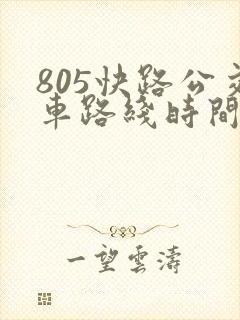 805快路公交
車路綫時間
一望雲濤